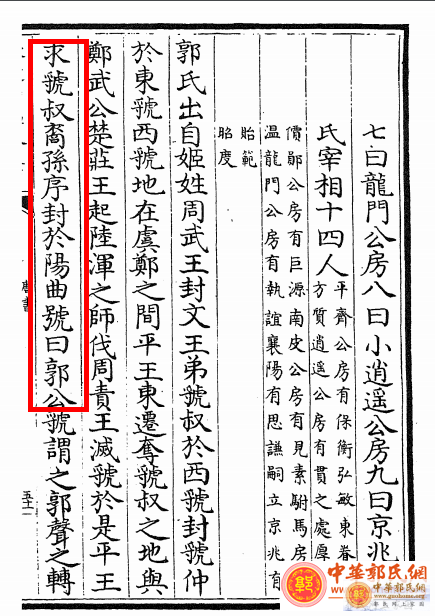 七曰龍門公房八曰小逍遥公房九曰京兆
氏宰相十四人
平齊公房有保衡弘敏東眷
方質逍遥公房有貫之處厚
儕鄖公房有巨源南皮公房有見素駙馬房
温龍門公房有執誼襄陽有思謙嗣立京兆有
貽範
昭度
郭氏出自姬姓周武王封文王弟虢叔於西虢封虢仲
於東虢西虢地在虞鄭之間平王東遷奪虢叔之地與
鄭武公楚莊王起陸渾之師伐周責王滅虢於是平王
求虢叔裔孫序封於陽曲號曰郭公虢謂之郭聲之轉
中華郭氏網
中華郭氏網